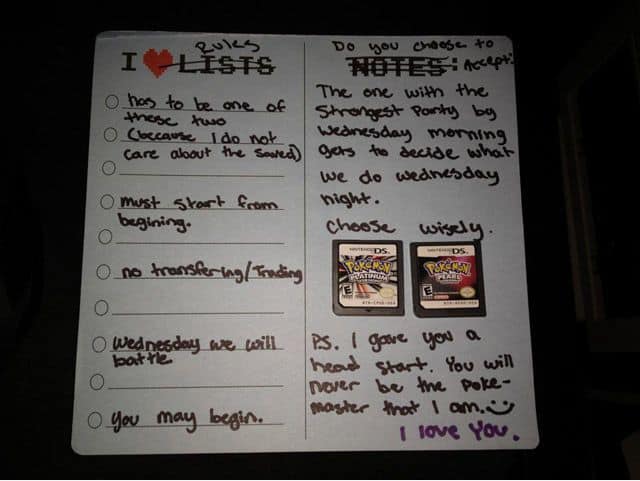 Rules
I ❤ LISTS
has to be one of
these two
(because I do not
care about the saved)
must start from
begining.
no transfering/Trading
Wednesday we will
battle
you may begin.
Do you choose to
NOTES: Accept?
The one with the
Strongest Party by
Wednesday morning
gets to decide what
we do wednesday
night.
Choose wisely.
NINTENDO DS.
POKéMON
PLATINUM
E
NINTENDO DS.
POKéMON
PEARL
E
PS. I gave you a
head start. You will
never be the Poke-
master that I am.
I love You.